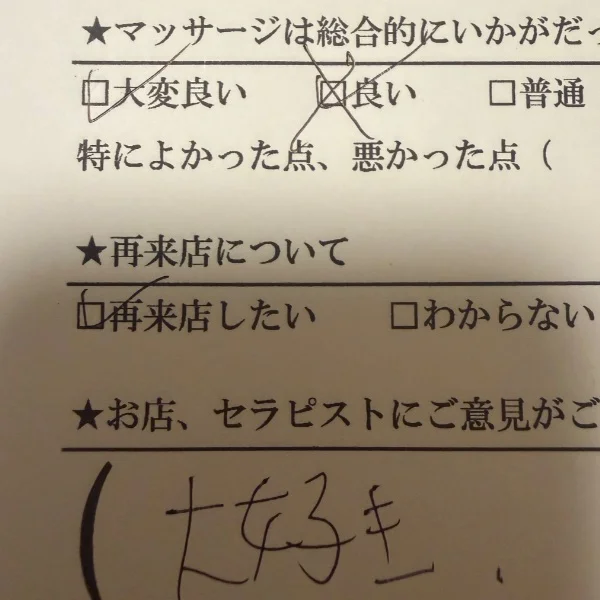 ★マッサージは総合的にいかがだっ
□大変良い □良い □普通
特によかった点、悪かった点（
★再来店について
□再来店したい □わからない
★お店、セラピストにご意見がご
（大好き.